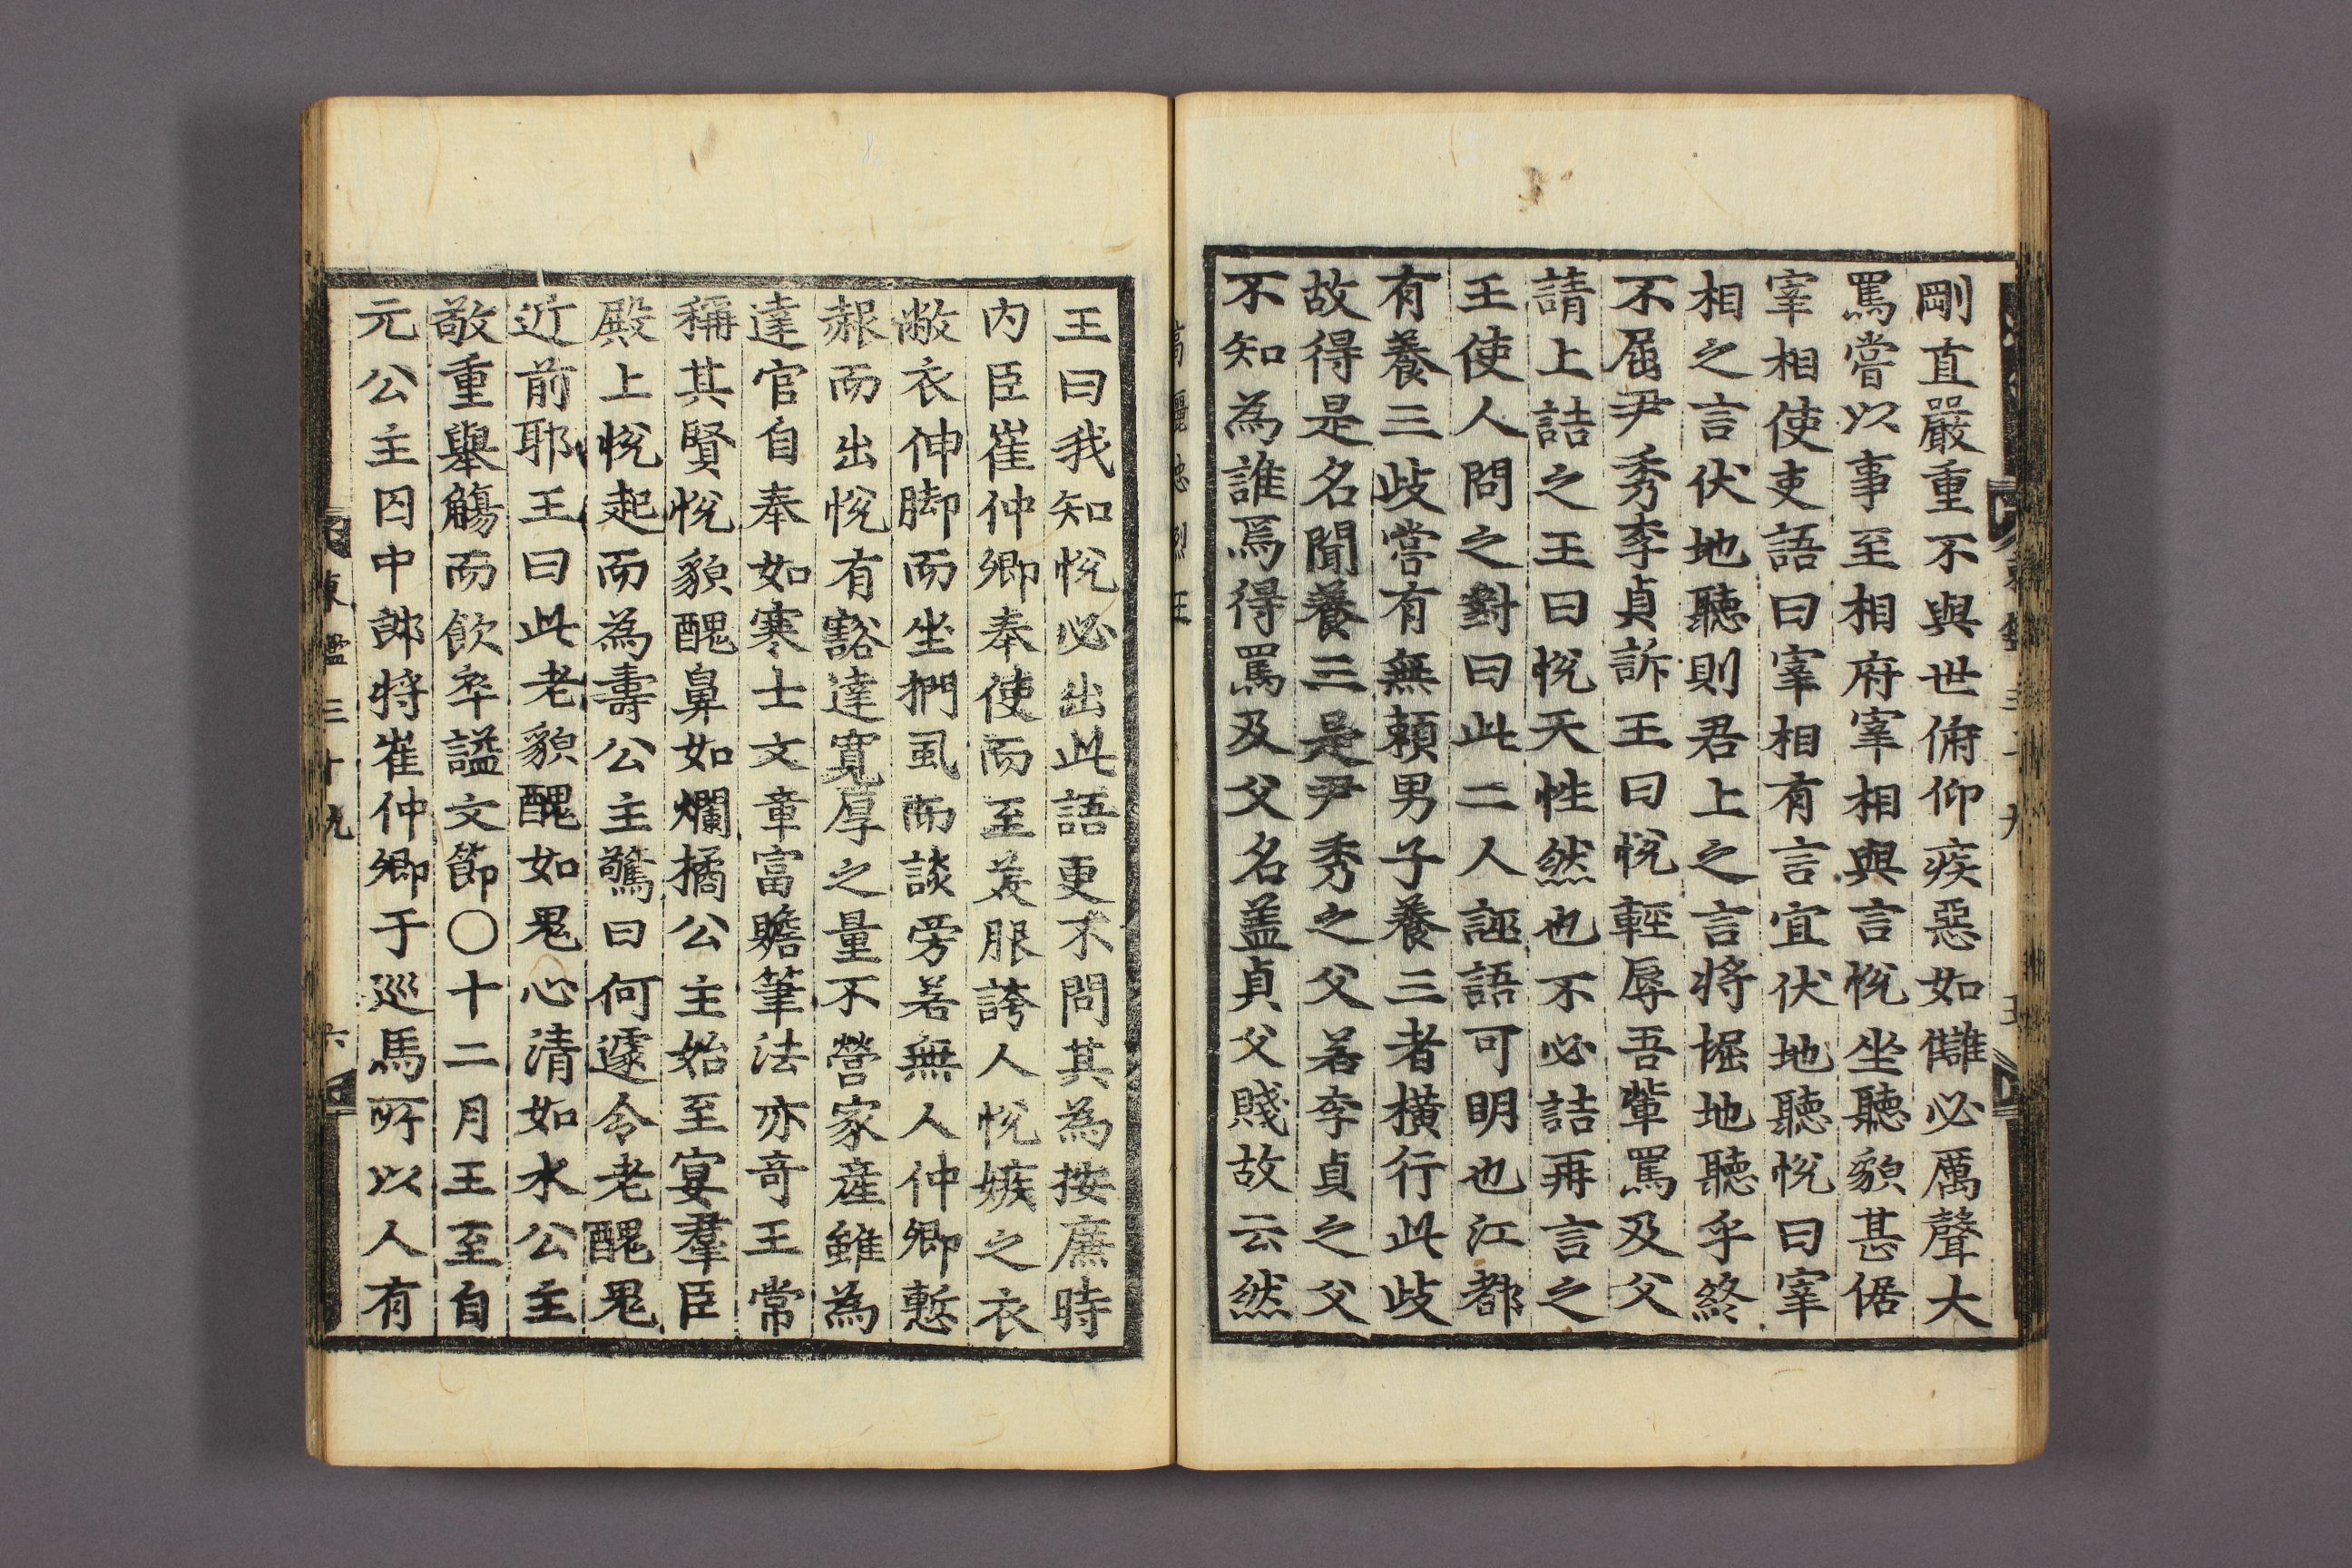 剛直嚴重不與世俯仰疾惡如讎必厲聲大
罵嘗以事至相府宰相與言恱坐聽貌甚倨
宰相使吏語曰宰相有言宜伏地聽恱曰宰
相之言伏地聽則君上之言將掘地聽乎終
不屈尹秀李貞訴王曰恱輕辱吾輩罵及父
請上詰之王曰恱天性然也不必詰再言之
王使人問之對曰此二人誣語可明也江都
有養三歧嘗有無頼男子養三者橫行此歧
故得是名聞養三是尹秀之父若李貞之父
不知為誰焉得罵及父名盖貞父賤故云然
高麗忠烈王
王曰我知恱必出此語更不問其為按廉時
内臣崔仲卿奉使而至美服誇人恱嫉之衣
敝衣伸脚而坐捫虱而談旁若無人仲卿慙
赧而出恱有豁達寬厚之量不營家産雖為
達官自奉如寒士文章富贍筆法亦竒王常
稱其賢恱貌醜鼻如爛橘公主始至宴羣臣
殿上恱起而為壽公主驚曰何遽令老醜鬼
近前耶王曰此老貌醜如鬼心清如水公主
敬重舉觴而飲卒謚文節〇十二月王至自
元公主囚中郎將崔仲卿于巡馬所以人有
東鑑三十九
六